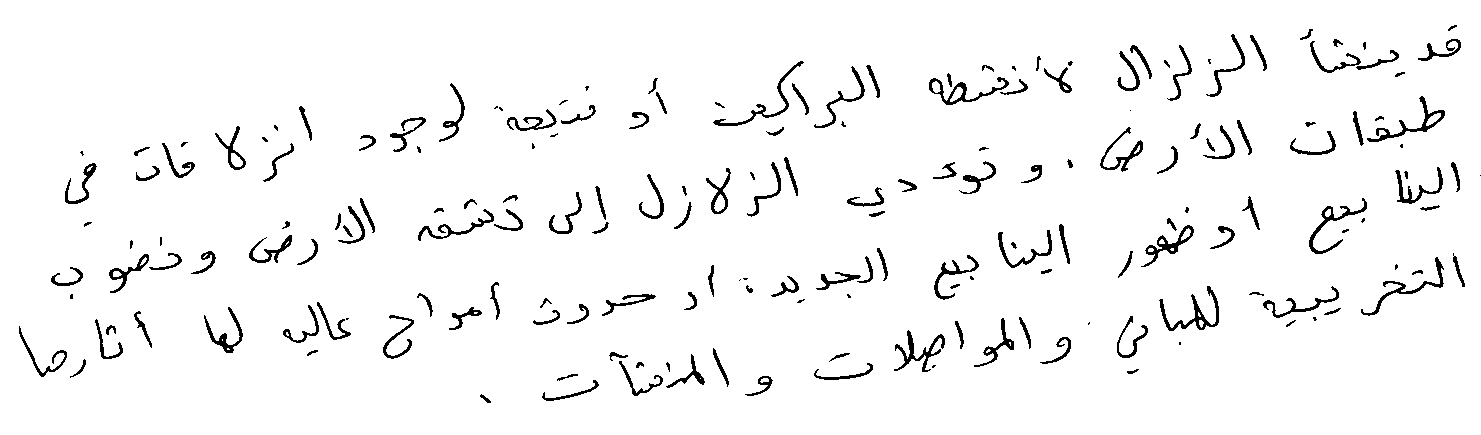 قد ينشأ الزلزال لأنشطه البراكين أو نتيجة لوجود انزلاقات في
طبقات الأرض . و تؤدي الزلازل إلى تشقه الأرض ونضوب
الينابيع أو ظهور الينابيع الجديدة أو حدوث أمواج عاليه لها أثارها
التخريبية للمباني والمواصلات والمنشآت .